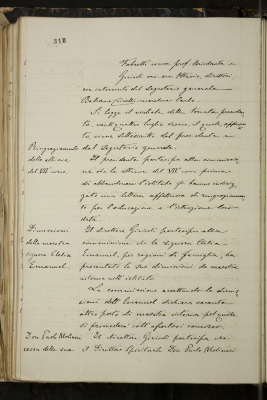 318
Fabretti comm. prof. Ariodante e
Giriodi cav. avv. Ottavio, direttori,
con intervento del Segretario generale
Balbiano
Si legge il verbale della tornata preceden-
te, ventiquattro luglio scorso, il quale, approva-
to, viene sottoscritto dal presidente e
dal segretario generale.
Ringraziamento
delle allieve
del VII corso.
Il presidente partecipa alla commissio-
ne che le allieve del VII corso prima
di abbandonare l'istituto gli hanno indiriz-
zato una lettera affettuosa di ringraziamen-
to per l'educazione e l'istruzione loro
data.
Dimissioni
della maestra
signora Clelia
Emanuel.
Il direttore Giriodi partecipa alla
commissione che la signora Clelia
Emanuel, per ragioni di famiglia, ha
presentato le sue dimissioni da maestra
interna nell'istituto.
La commissione accettando le dimis-
sioni dell'Emanuel dichiara vacante
altro posto di maestra interna pel quale
si provvederà coll'aperto concorso.
Don Paolo Molineri
cessa dalle sue
Il direttore Giriodi partecipa che
il Direttore Spirituale Don Paolo Molineri